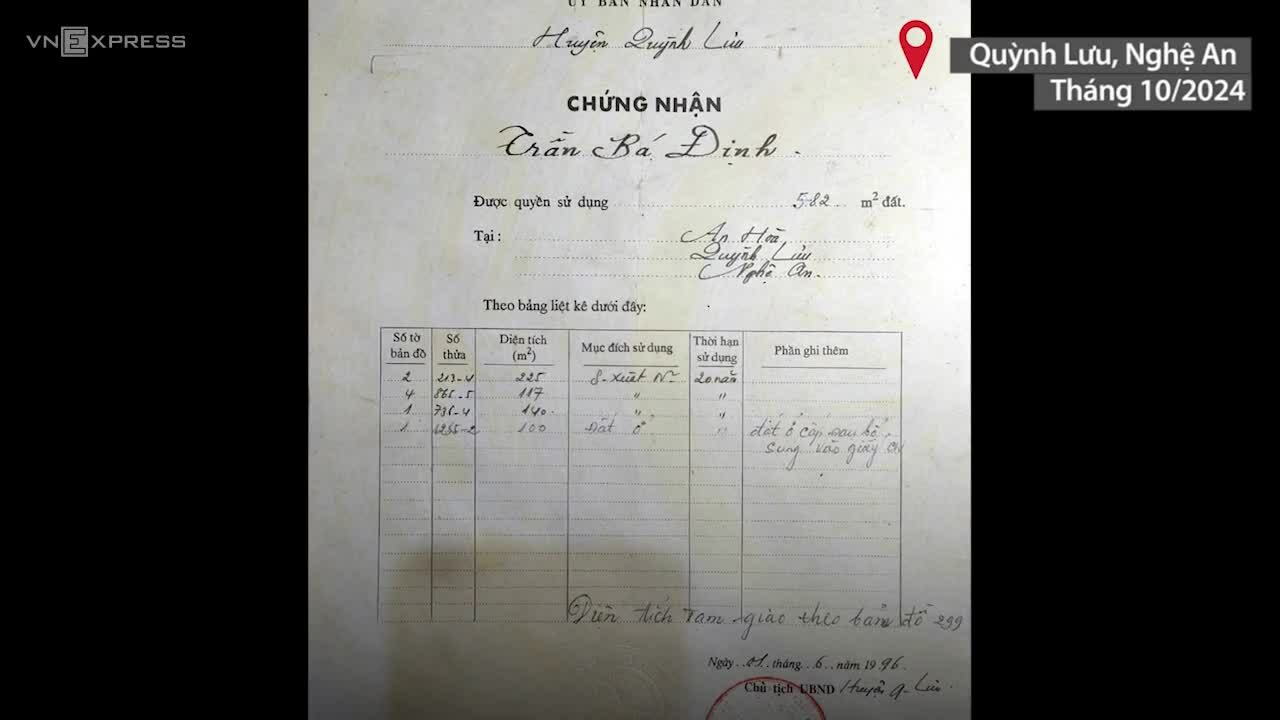 VNEXPRESS
Quỳnh Lưu, Nghệ An
Tháng 10/2024
ỦY BAN NHÂN DÂN
Huyện Quỳnh Lưu
CHỨNG NHẬN
Trần Bá Định
Được quyền sử dụng 582 m² đất.
Tại: An Hoà
Quỳnh Lưu
Nghệ An.
Theo bảng liệt kê dưới đây:
Số tờ bản đồ Số thửa Diện tích (m²) Mục đích sử dụng Thời hạn sử dụng Phần ghi thêm
2 213-4 225 S-xuất N² 20 năm
4 865-5 117 " "
1 735-4 140 " "
1 100 Đất ở " đất ở cấp sau bổ
sung vào giấy
Diện tích tạm giao theo bản đồ 299
Ngày 01 tháng 6 năm 1996.
Chủ tịch UBND Huyện Q-Lưu